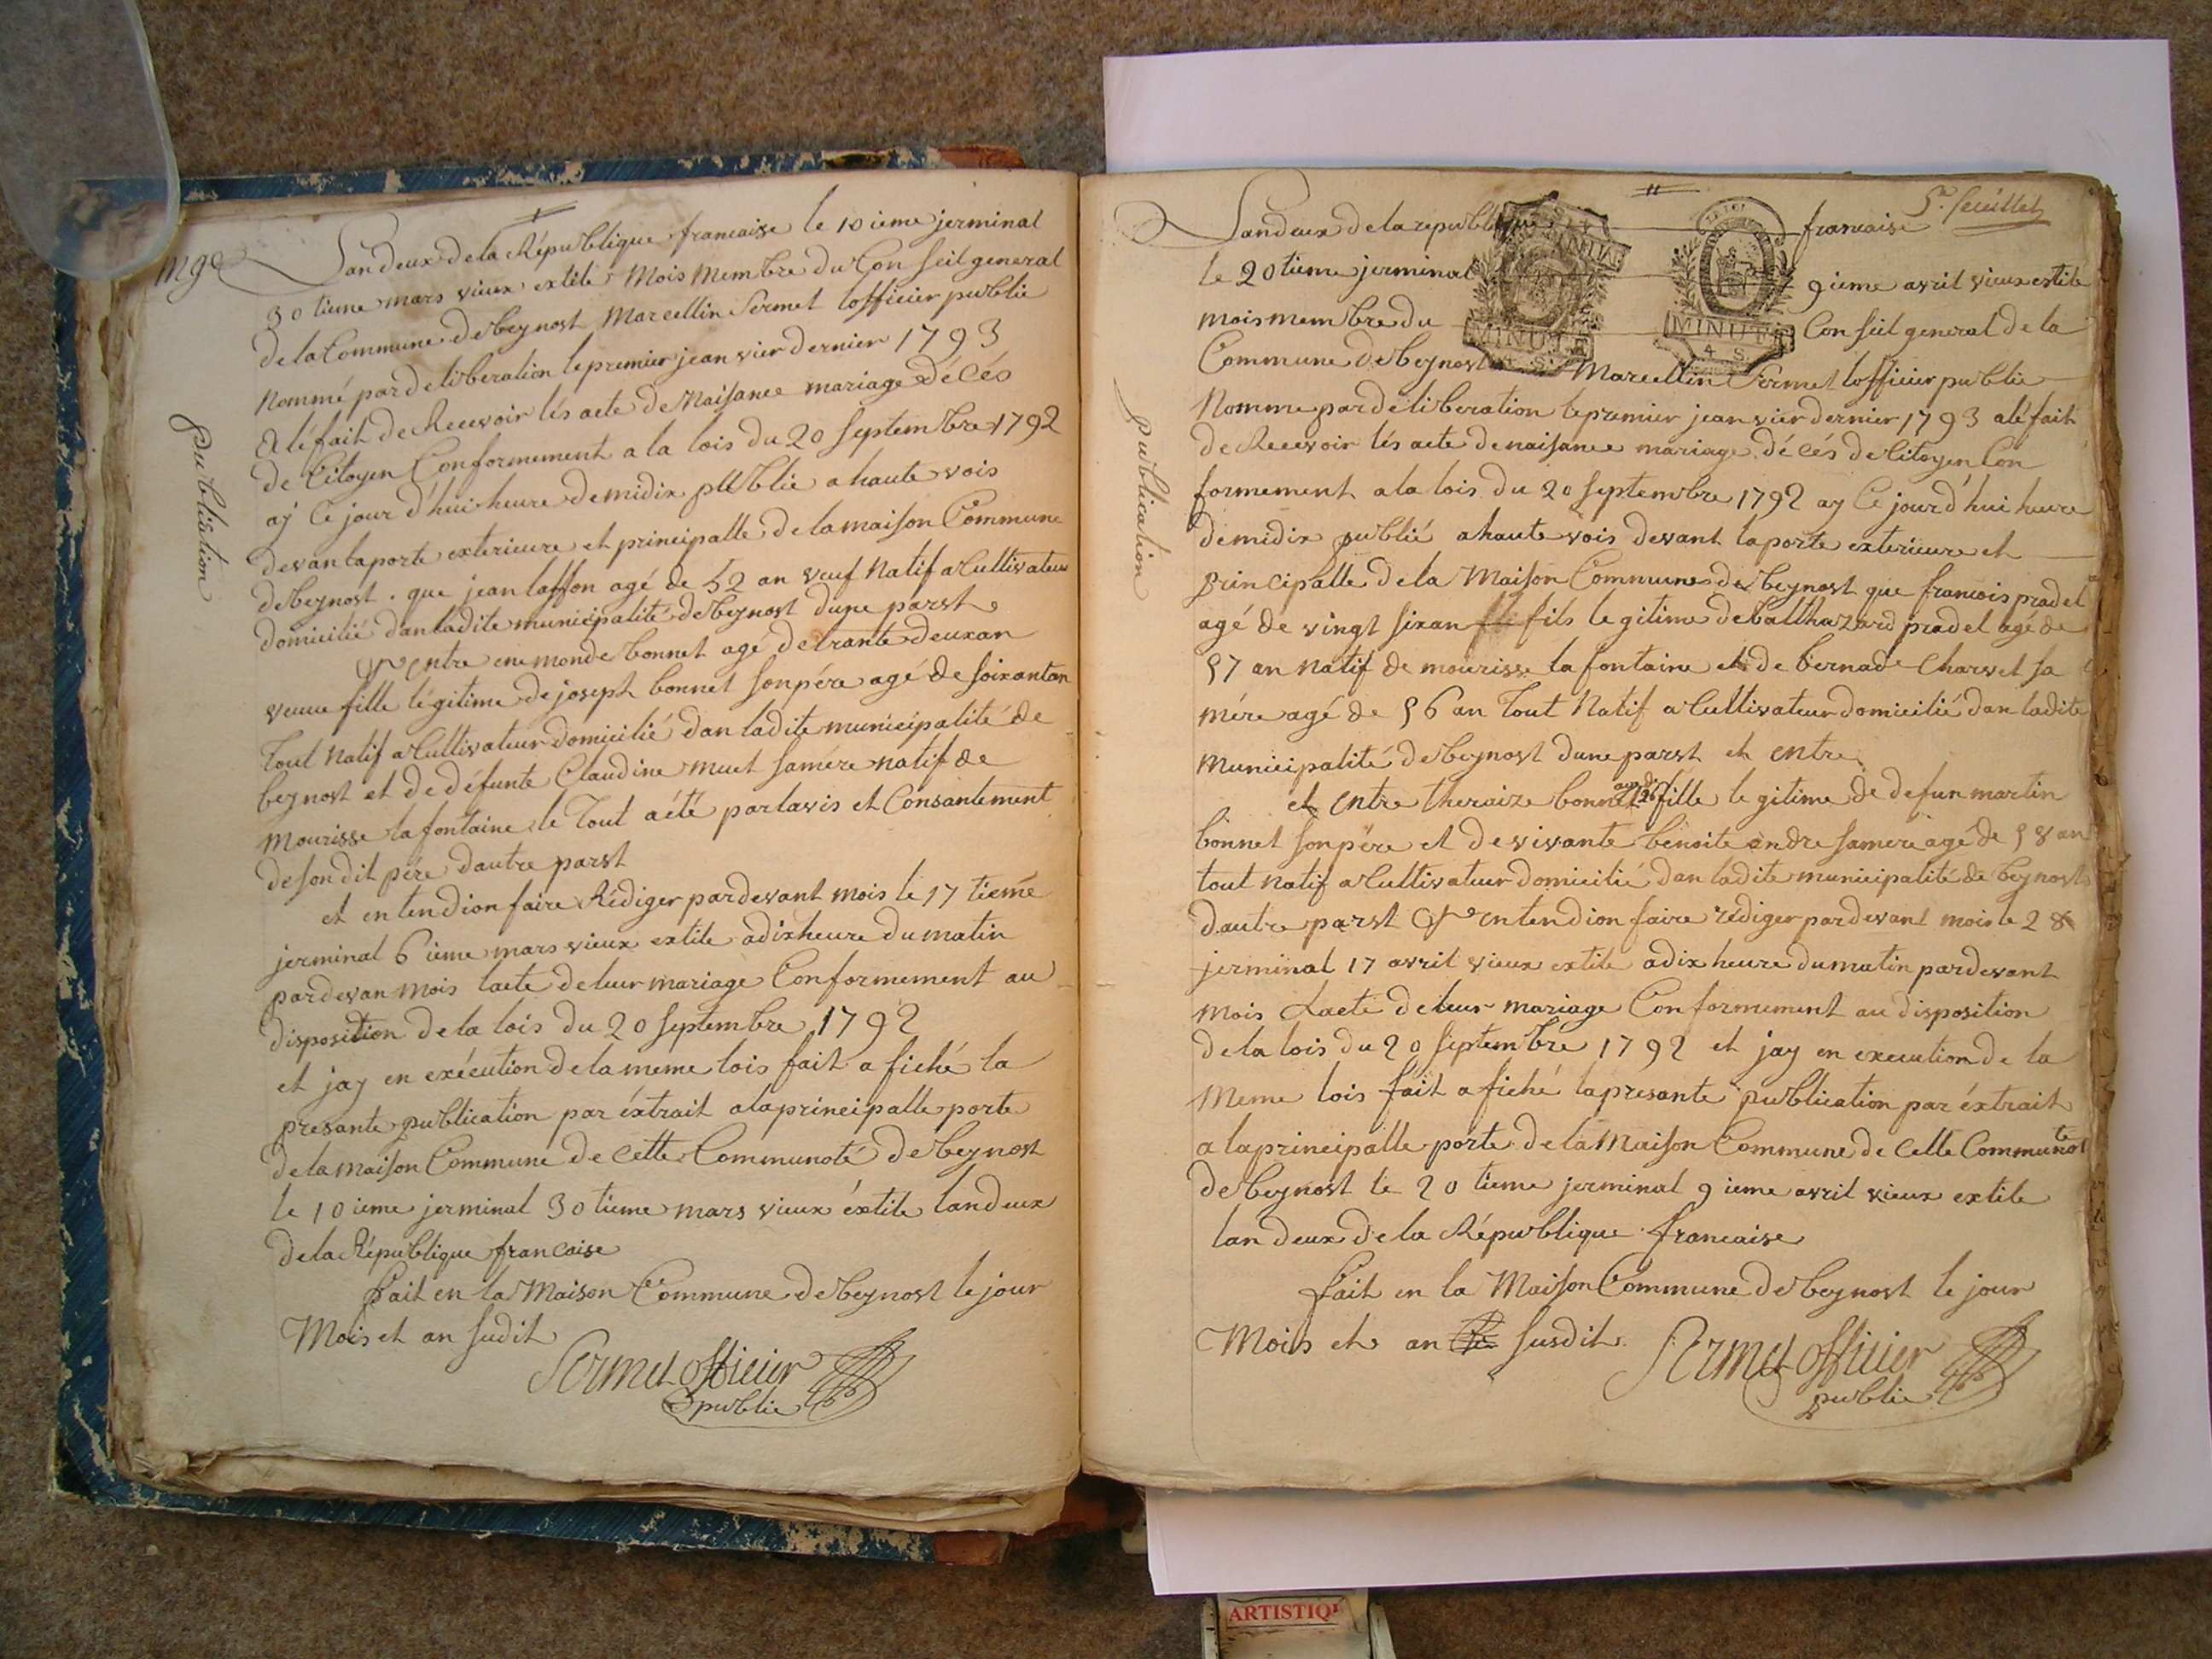 mge
Lan deux de la République francaise le 10 ieme jerminal
30 tieme mars vieux extile Mois Membre du Conseil general
de la Commune de beynost Marcellin Sermet lofficier public
Nommé par deliberation le premier jeanvier dernier 1793
A léfait de Recevoir lés acte de Naisance mariage Décés
de Citoyen Conformement a la lois du 20 septembre 1792
ay Ce jour d'hui heure de midix publié a haute vois
devan laporte exterieure et principalle de la maison Commune
de beynost . que jean laffon agé de 52 an veuf Natif a Cultivateur
domicilié dan ladite municipalité de beynost dune parst
Et entre enemonde bonnet agé de trante deux an
veuve fille légitime de joseph bonnet son pére agé de soixantan
Tout Natif a Cultivateur domicilié dan ladite municipalité de
beynost et de défunte Claudine muet samére natif de
mourisse la fontaine le Tout aété par lavis et Consantement
de son dit pére dautre parst
et entendion faire Rédiger pardevant mois le 17 tieme
jerminal 6 ieme mars vieux extile a dix heure du matin
pardevan mois lacte de leur mariage Conformement au
disposition de la lois du 20 septembre 1792
et jay en exécution de la meme lois fait a fiché la
presante publication par éxtrait a la principalle porte
de la maison Commune de Cette Communoté de beynost
le 10 ieme jerminal 30 tieme mars vieux éxtile lan deux
de la République francaise
Fait en la Maison Commune de beynost le jour
Mois et an sudit
Sermet officier
public
publication
5e. feuillet
Lan deux de la republique francaise
le 20 tieme jerminal 9 ieme avril vieux extile
mois membre du Conseil general de la
Commune de beynost Marcellin Sermet lofficier public
MINUTE
4 S.
MINUTE
4 S.
Nomme par déliberation le premier jeanvier dernier 1793 a léfait
de Recevoir lés acte de naisance mariage décés de Citoyen Con
formement a la lois du 20 septembre 1792 ay Ce jourd'hui heure
de midix publié a haute vois devant la porte exterieure et
principalle de la Maison Commune de beynost que francois pradel
agé de vingt sixan fils legitime de balthazard pradel agé de
57 an natif de mourisse la fontaine et de bernade Charvet sa
mére agé de 56 an Tout Natif a Cultivateur domicilié dan ladite
Municipalité de beynost dune parst et entre
et entre theraize bonnet fille legitime de defun martin
bonnet son pére et de vivante benoite andre samere agé de 58 an
tout natif a Cultivateur domicilié dan ladite municipalité de beynost
dautre parst Et entendion faire rédiger pardevant mois le 28
jerminal 17 avril vieux extile a dix heure du matin pardevant
mois Lacte de leur mariage Conformement au disposition
de la lois du 20 septembre 1792 et jay en execution de la
Meme lois fait a fiché la presante publication par éxtrait
a la principalle porte de la Maison Commune de Cette Communoté
de beynost le 20 tieme jerminal 9 ieme avril vieux extile
lan deux de la République francaise
Fait en la Maison Commune de beynost le jour
Mois et an susdit.
Sermet officier
public
publication
ARTISTIQ